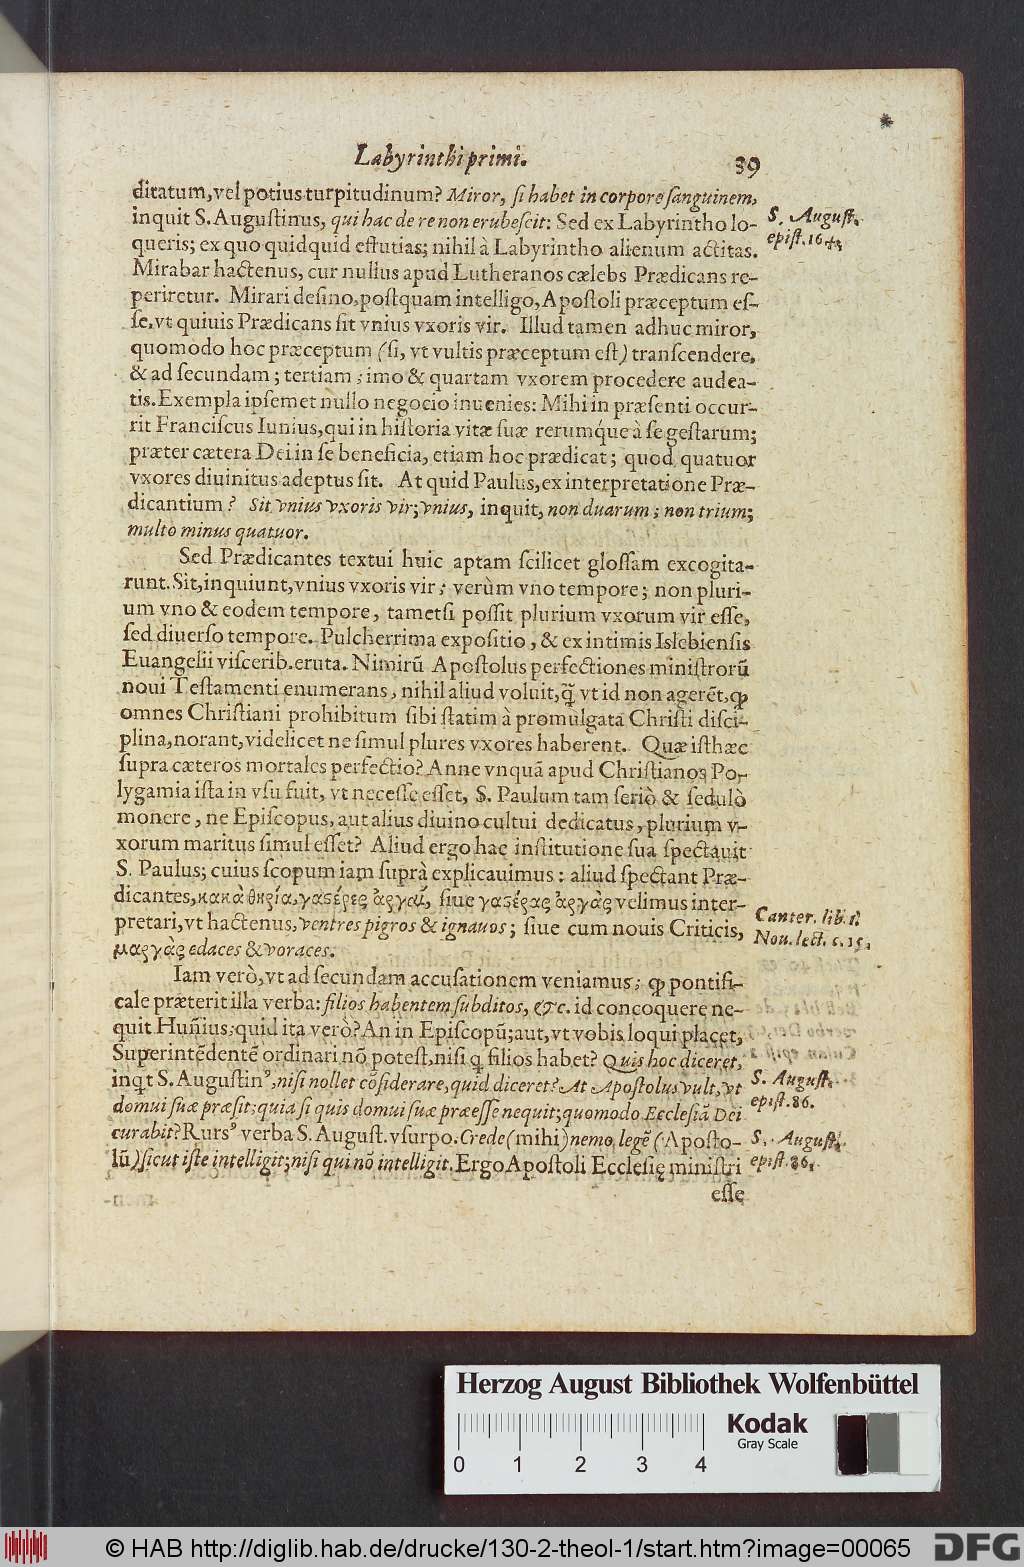 Labyrinthi primi. 39
ditatum, vel potius turpitudinum? Miror, ſi habet in corpore ſanguinem,
inquit S. Auguſtinus, qui hac de re non erubeſcit: Sed ex Labyrintho lo-
queris; ex quo quidquid eſtutias; nihil à Labyrintho alienum actitas.
Mirabar hactenus, cur nullus apud Lutheranos cælebs Prædicans re-
periretur. Mirari deſino, poſtquam intelligo, Apoſtoli præceptum eſ-
ſe, vt quiuis Prædicans ſit vnius vxoris vir. Illud tamen adhuc miror,
quomodo hoc præceptum (ſi, vt vultis præceptum eſt) tranſcendere,
& ad ſecundam; tertiam; imo & quartam vxorem procedere audea-
tis. Exempla ipſemet nullo negocio inuenies: Mihi in præſenti occur-
rit Franciſcus Iunius, qui in hiſtoria vitæ ſuæ rerumq́ue à ſe geſtarum;
præter cætera Dei in ſe beneficia, etiam hoc prædicat; quod quatuor
vxores diuinitus adeptus ſit. At quid Paulus, ex interpretatione Præ-
dicantium? Sit vnius vxoris vir; vnius, inquit, non duarum; non trium;
multo minus quatuor.
Sed Prædicantes textui huic aptam ſcilicet gloſſam excogita-
runt. Sit, inquiunt, vnius vxoris vir; verùm vno tempore; non pluri-
um vno & eodem tempore, tametſi poſſit plurium vxorum vir eſſe,
ſed diuerſo tempore. Pulcherrima expoſitio, & ex intimis Islebienſis
Euangelii viſcerib. eruta. Nimirũ Apoſtolus perfectiones miniſtrorũ
noui Teſtamenti enumerans, nihil aliud voluit, q̃ vt id non agerẽt, ꝙ
omnes Chriſtiani prohibitum ſibi ſtatim à promulgata Chriſti diſci-
plina, norant, videlicet ne ſimul plures vxores haberent. Quæ iſthæc
ſupra cæteros mortales perfectio? Anne vnquã apud Chriſtianos Po-
lygamia iſta in vſu fuit, vt neceſſe eſſet, S. Paulum tam ſeriò & ſedulò
monere, ne Epiſcopus, aut alius diuino cultui dedicatus, plurium v-
xorum maritus ſimul eſſet? Aliud ergo hac inſtitutione ſua ſpectauit
S. Paulus; cuius ſcopum iam ſuprà explicauimus: aliud ſpectant Præ-
dicantes, κακὰ θηρία, γαϛέρες ἀργαί, ſiue γαϛέρας ἀργὰς velimus inter-
pretari, vt hactenus, ventres pigros & ignauos; ſiue cum nouis Criticis,
μαργὰς edaces & voraces.
Iam verò, vt ad ſecundam accuſationem veniamus; ꝙ pontifi-
cale præterit illa verba: filios habentem ſubditos, &c. id concoquere ne-
quit Hun̄ius; quid ita verò? An in Epiſcopũ; aut, vt vobis loqui placet,
Superintẽdentẽ ordinari nõ poteſt, niſi q̃ filios habet? Quis hoc diceret,
inqt S. Auguſtinꝰ, niſi nollet cõſiderare, quid diceret? At Apoſtolus vult, vt
domui ſuæ præſit; quia ſi quis domui ſuæ præeſſe nequit; quomodo Eccleſiã Dei
curabit? Rursꝰ verba S. Auguſt. vſurpo. Crede (mihi) nemo legẽ (Apoſto-
lũ) ſicut iſte intelligit; niſi qui nõ intelligit. Ergo Apoſtoli Eccleſię miniſtri
eſſe
S. Auguſt.
epiſt. 164.
Canter. lib. 1.
Nou. lect. c. 15.
S. Auguſt.
epiſt. 86.
S. Auguſt.
epiſt. 86.
Herzog August Bibliothek Wolfenbüttel
Kodak
Gray Scale
0 1 2 3 4
© HAB http://diglib.hab.de/drucke/130-2-theol-1/start.htm?image=00065
DFG